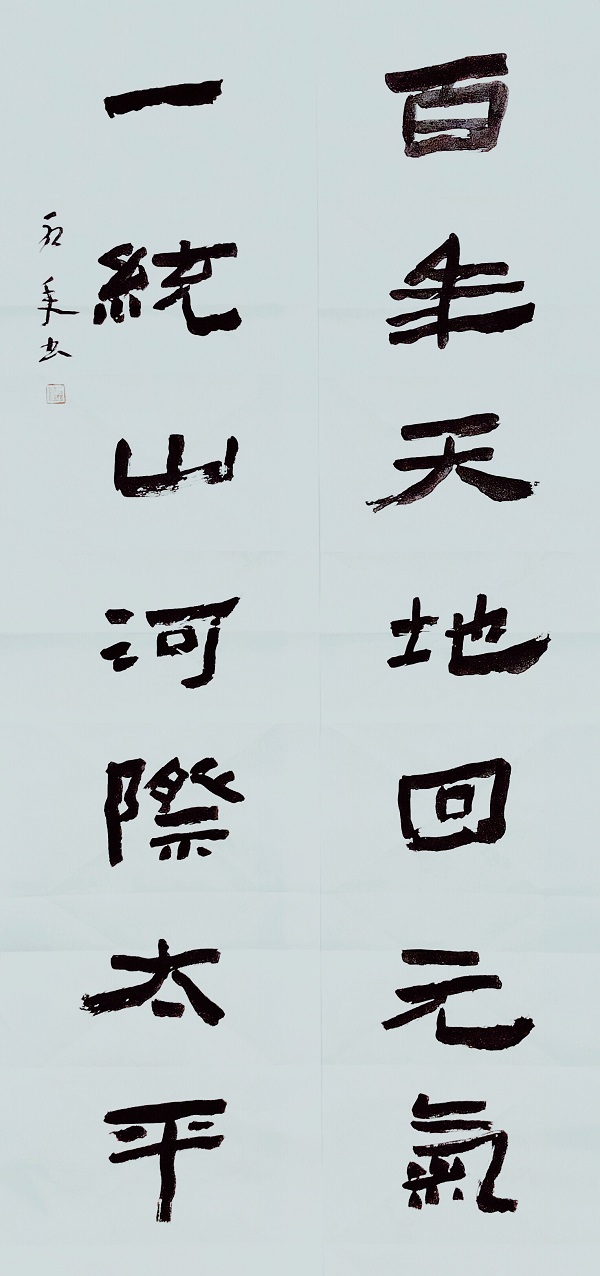 百年天地回元氣
一統山河際太平
書